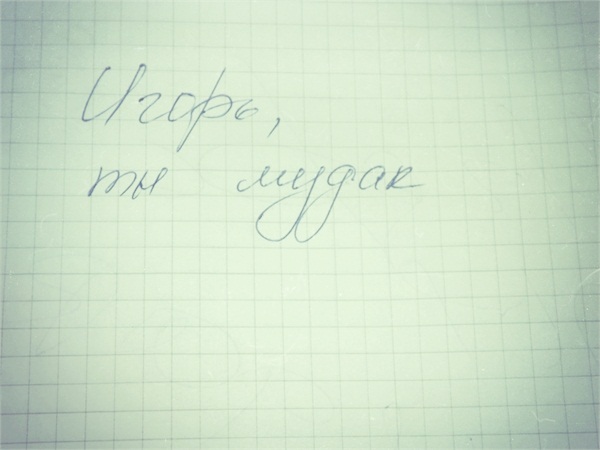 Игорь,
ты мудак